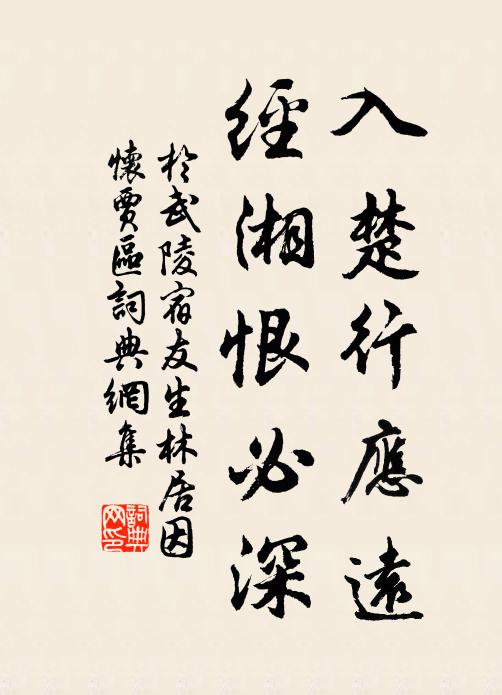 入楚行應遠
經湘恨必深
於武陵宿友生林居因
懷賈區詞典網集
詞典
网印